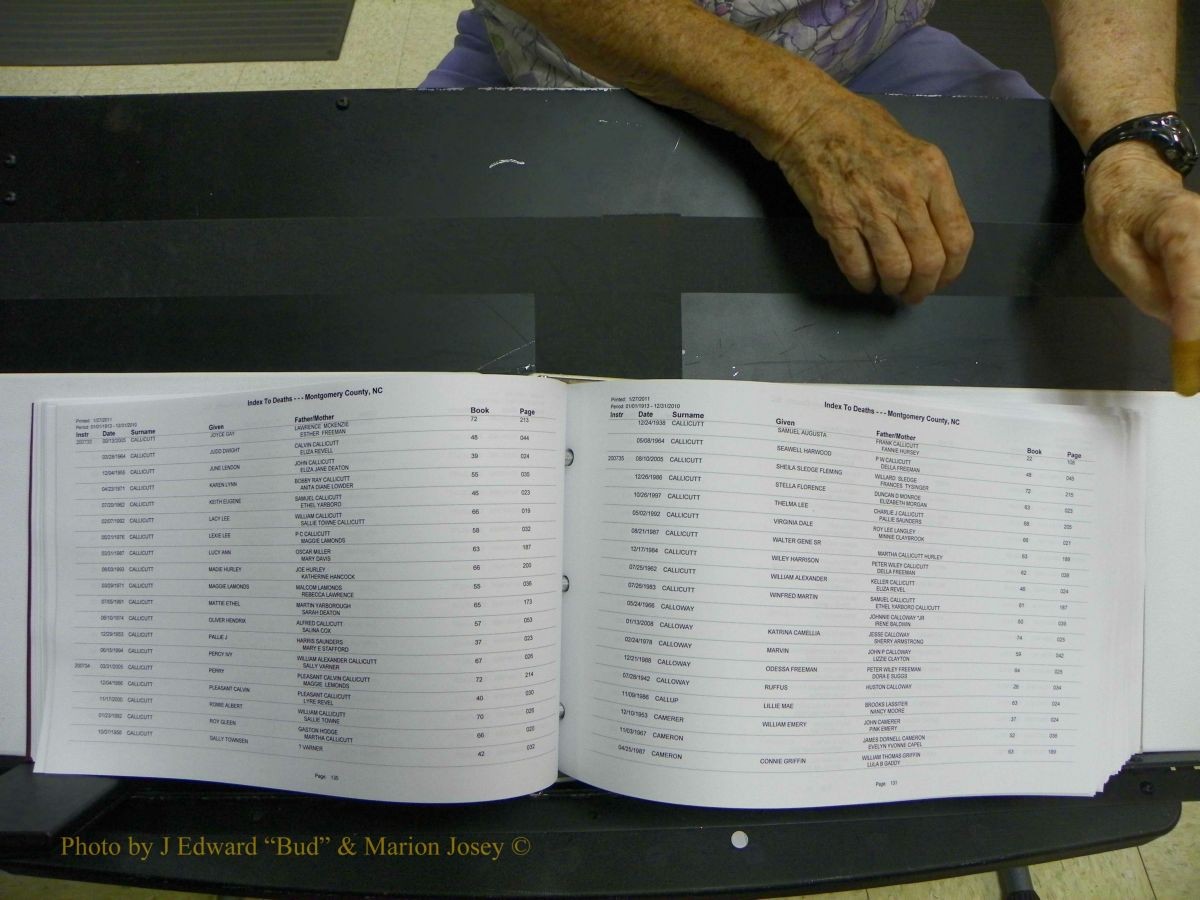 Index To Deaths - - - Montgomery County, NC
Printed: 1/27/2011
Period: 01/01/1913 - 12/31/2010
Instr Date Surname Given Father/Mother Book Page
200733 09/13/2005 CALLICUTT JOYCE GAY LAWRENCE MCKENZIE 72 213
ESTHER FREEMAN
03/28/1964 CALLICUTT JUDD DWIGHT CALVIN CALLICUTT 48 044
ELIZA REVELL
12/04/1955 CALLICUTT JUNE LENDON JOHN CALLICUTT 39 024
ELIZA JANE DEATON
04/23/1971 CALLICUTT KAREN LYNN BOBBY RAY CALLICUTT 55 035
ANITA DIANE LOWDER
07/20/1962 CALLICUTT KEITH EUGENE SAMUEL CALLICUTT 46 023
ETHEL YARBORO
02/07/1992 CALLICUTT LACY LEE WILLIAM CALLICUTT 66 019
SALLIE TOWNE CALLICUTT
CALLICUTT LEXIE LEE P C CALLICUTT 58 032
MAGGIE LAMONDS
03/31/1987 CALLICUTT LUCY ANN OSCAR MILLER 63 187
MARY DAVIS
CALLICUTT MADIE HURLEY JOE HURLEY 66 200
KATHERINE HANCOCK
CALLICUTT MAGGIE LAMONDS MALCOM LAMONDS 55 036
REBECCA LAWRENCE
CALLICUTT MATTIE ETHEL MARTIN YARBOROUGH 65 173
SARAH DEATON
CALLICUTT OLIVER HENDRIX ALFRED CALLICUTT 57 053
SALINA COX
12/29/1953 CALLICUTT PALLIE J HARRIS SAUNDERS 37 023
MARY E STAFFORD
CALLICUTT PERCY IVY WILLIAM ALEXANDER CALLICUTT 67 026
SALLY VARNER
200734 03/31/2005 CALLICUTT PERRY PLEASANT CALVIN CALLICUTT 72 214
MAGGIE LEMONDS
12/04/1956 CALLICUTT PLEASANT CALVIN PLEASANT CALLICUTT 40 030
LYRE REVEL
11/17/2000 CALLICUTT ROMIE ALBERT WILLIAM CALLICUTT 70 025
SALLIE TOWNE
01/23/1992 CALLICUTT ROY GLEEN GASTON HODGE 66 020
MARTHA CALLICUTT
10/07/1958 CALLICUTT SALLY TOWNSEN ? VARNER 42 032
Page: 135
Index To Deaths - - - Montgomery County, NC
Printed: 1/27/2011
Period: 01/01/1913 - 12/31/2010
Instr Date Surname Given Father/Mother Book Page
12/24/1938 CALLICUTT SAMUEL AUGUSTA FRANK CALLICUTT 22 108
FANNIE HURSEY
05/08/1964 CALLICUTT SEAWELL HARWOOD P W CALLICUTT 48 045
DELLA FREEMAN
200735 08/10/2005 CALLICUTT SHEILA SLEDGE FLEMING WILLARD SLEDGE 72 215
FRANCES TYSINGER
12/26/1986 CALLICUTT STELLA FLORENCE DUNCAN D MONROE 63 023
ELIZABETH MORGAN
10/26/1997 CALLICUTT THELMA LEE CHARLIE J CALLICUTT 68 205
PALLIE SAUNDERS
05/02/1992 CALLICUTT VIRGINIA DALE ROY LEE LANGLEY 66 021
MINNIE CLAYBROOK
08/21/1987 CALLICUTT WALTER GENE SR 63 188
MARTHA CALLICUTT HURLEY
12/17/1984 CALLICUTT WILEY HARRISON PETER WILEY CALLICUTT 62 038
DELLA FREEMAN
07/25/1962 CALLICUTT WILLIAM ALEXANDER KELLER CALLICUTT 46 024
ELIZA REVEL
07/26/1983 CALLICUTT WINFRED MARTIN SAMUEL CALLICUTT 61 187
ETHEL YARBORO CALLICUTT
05/24/1966 CALLOWAY JOHNNIE CALLOWAY *JR 50 039
IRENE BALDWIN
01/13/2008 CALLOWAY KATRINA CAMELLIA JESSE CALLOWAY 74 025
SHERRY ARMSTRONG
02/24/1978 CALLOWAY MARVIN JOHN P CALLOWAY 59 042
LIZZIE CLAYTON
12/21/1988 CALLOWAY ODESSA FREEMAN PETER WILEY FREEMAN 64 025
DORA E SUGGS
07/28/1942 CALLOWAY RUFFUS HUSTON CALLOWAY 26 034
11/09/1986 CALLUP LILLIE MAE BROOKS LASSITER 63 024
NANCY MOORE
12/10/1953 CAMERER WILLIAM EMERY JOHN CAMERER 37 024
PINK EMERY
11/03/1967 CAMERON JAMES DORNELL CAMERON 52 036
EVELYN YVONNE CAPEL
04/25/1987 CAMERON CONNIE GRIFFIN WILLIAM THOMAS GRIFFIN 63 189
LULA B GADDY
Page: 131
Photo by J Edward “Bud” & Marion Josey ©